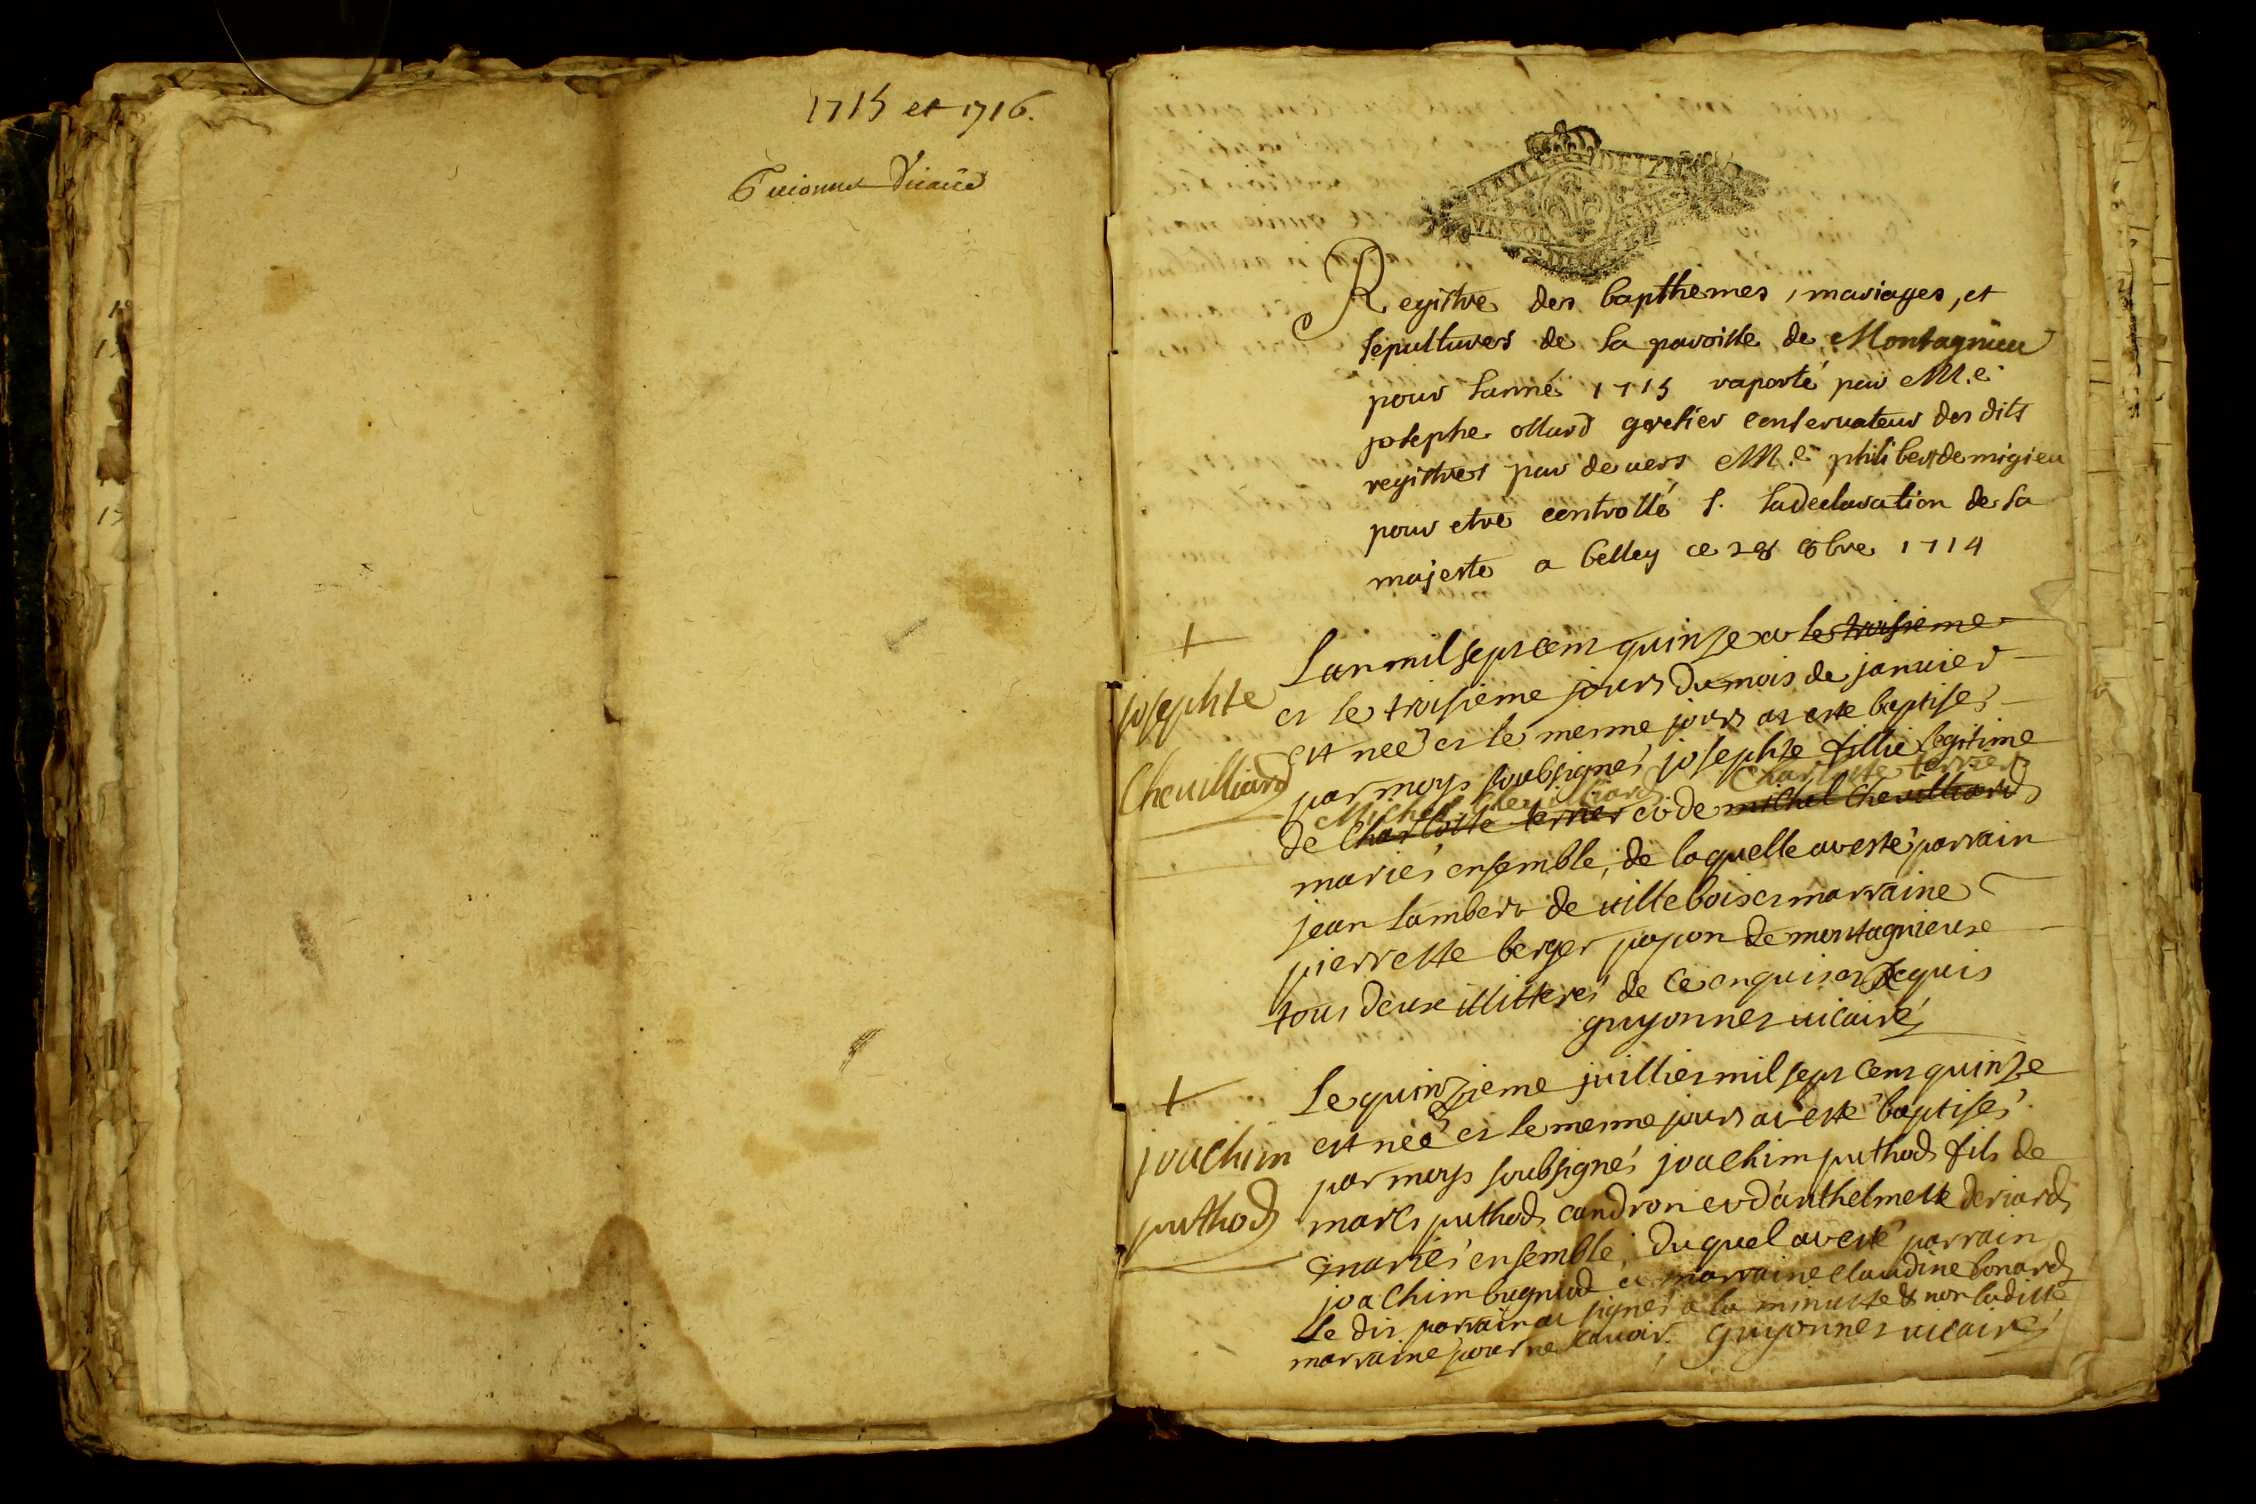 1715 et 1716.
Guionnet Vicaire
Registre des bapthemes, mariages, et
sepultures de la paroisse de Montagnieu
pour lanné 1715 raporté par M.e
josephe ollard grefier conservateur des dits
registres par devers M.e philibert de migieu
pour etre controllé s. la declaration de sa
majeste a belley ce 28 8bre 1714
+
josephte
Chevilliard
Lan mil sept cent quinze et le troisieme
et le troisieme jours du mois de janvier
est neé et le mesme jours at esté baptisé
par moys soubsigné josephte fillie legitime
Michel Chevilliard Charlotte terrier
de Charlotte terrier et de michel Chevilliard
marié ensemble, de laquelle at esté parrain
jean lambert de villebois et marraine
pierrette berger papon de montagnieux
tous deux illitteré de ce enquis et requis
guyonnet vicaire
+
joachim
puthod
Le quinzieme juilliet mil sept cent quinze
est neé et le mesme jours at esté baptisé
par moys soubsigné joachim puthod fils de
marcs puthod candron et d'anthelmette deriard
marié ensemble, duquel at esté parrain
joachim bugniod et marraine claudine bonard
Le dit parrain at signé a la minutte & non laditte
marraine pour ne scavoir. guyonnet vicaire